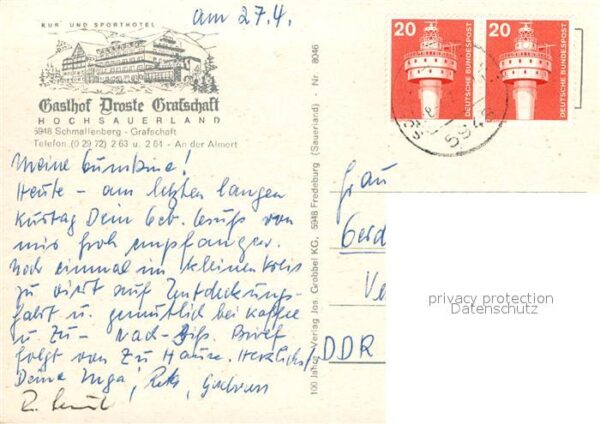 am 27.4.
KUR UND SPORTHOTEL
Gasthof Droste Grafschaft
HOCHSAUERLAND
5948 Schmallenberg - Grafschaft
Telefon (0 29 72) 2 63 u. 2 64 - An der Almert
Meine
Heute - am letzten langen
Kurtag Dein Geb. Gruß von
mir froh empfangen.
Noch einmal im kleinen Kreis
zu viert auf Entdeckungs-
fahrt u. gemütlich bei Kaffee
u. Zu- Nach- Brief
folgt von Zu Hause. Herzlichst
Deine Inga,
100 Jahre Verlag Jos. Grobbel KG, 5948 Fredeburg (Sauerland) - Nr. 8046
20
DEUTSCHE BUNDESPOST
20
DEUTSCHE BUNDESPOST
594
Frau
Gerd
Ve
DDR
privacy protection
Datenschutz